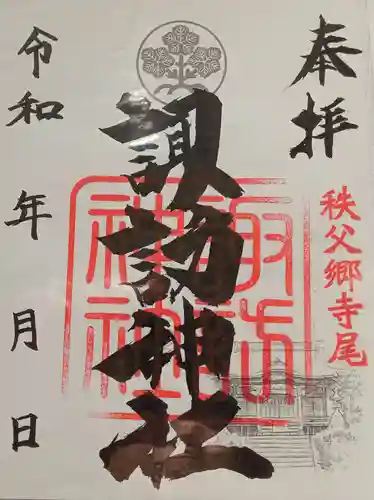 奉拝
秩父郷寺尾
諏訪神社
諏訪神社
令和 年 月 日